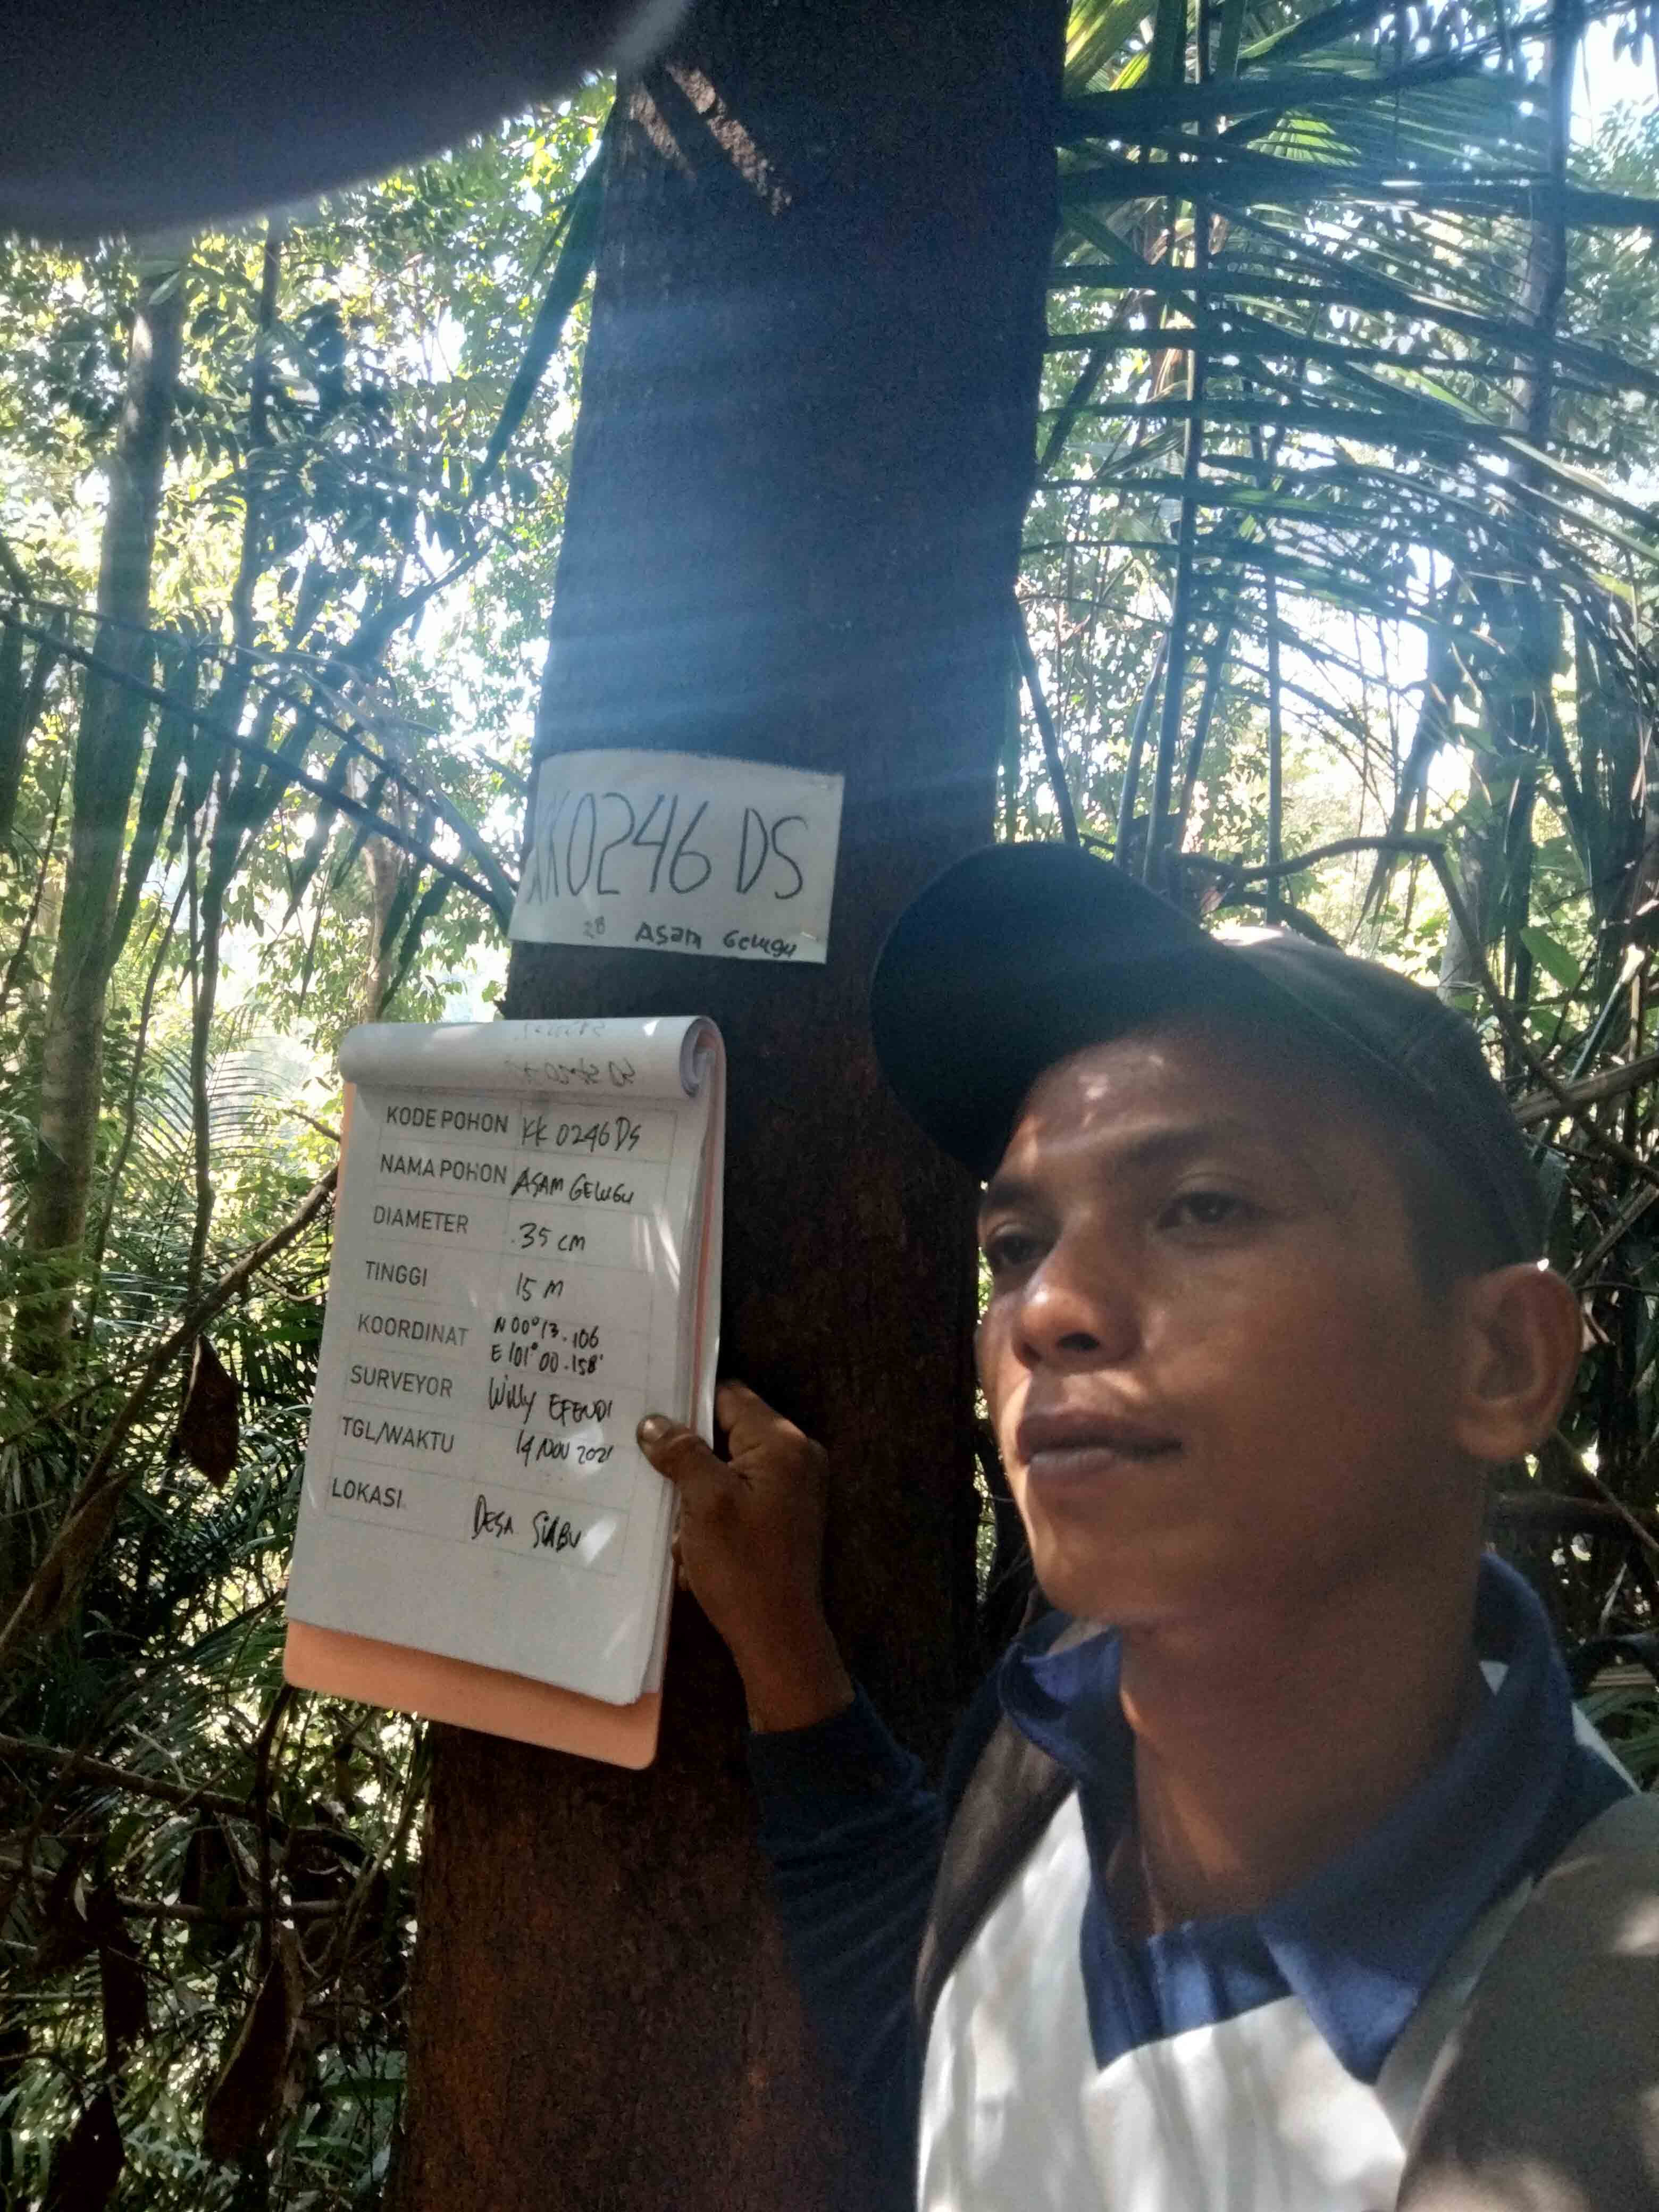 KK0246 DS
28 Asam Gelugu
KODE POHON KK 0246 DS
NAMA POHON ASAM GELUGU
DIAMETER 35 cm
TINGGI 15 M
KOORDINAT N 00°13.106
E 101°00.158'
SURVEYOR Willy EFENDI
TGL/WAKTU 14 NOV 2021
LOKASI DESA SIABU